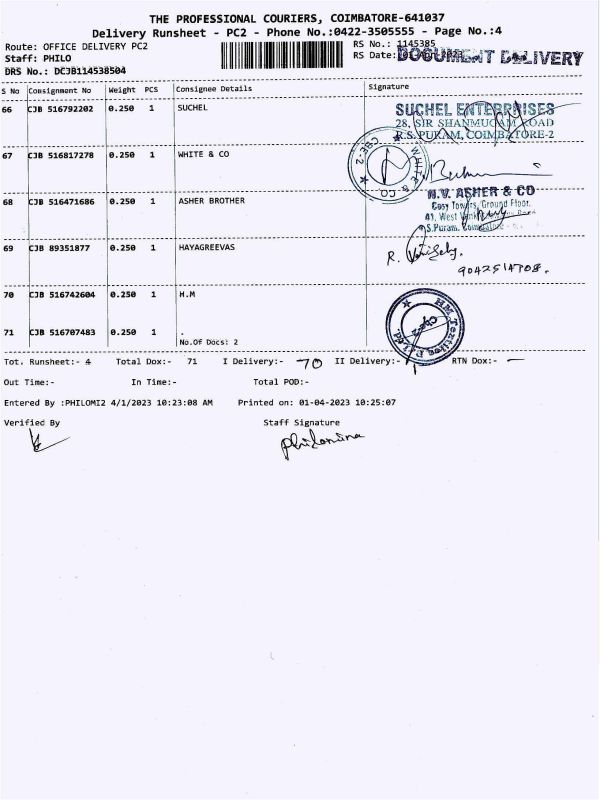 THE PROFESSIONAL COURIERS, COIMBATORE-641037
Delivery Runsheet - PC2 - Phone No.:0422-3505555 - Page No.:4
Route: OFFICE DELIVERY PC2
RS No.: 1145385
Staff: PHILO
RS Date: 01-Apr-2023
DOCUMENT DELIVERY
DRS No.: DCJB114538504
S No Consignment No Weight PCS Consignee Details Signature
66 CJB 516792202 0.250 1 SUCHEL
SUCHEL ENTERPRISES
28, SIR SHANMUGAM ROAD
R.S. PURAM, COIMBATORE-2
67 CJB 516817278 0.250 1 WHITE & CO
WHITE & CO.
CBE-2
68 CJB 516471686 0.250 1 ASHER BROTHER
N.V. ASHER & CO
Cosy Towers, Ground Floor,
41, West
S.Puram, Coimbatore
69 CJB 89351877 0.250 1 HAYAGREEVAS
R.
70 CJB 516742604 0.250 1 H.M
HM Textiles
CBE-2
71 CJB 516707483 0.250 1 .
No.Of Docs: 2
Tot. Runsheet:- 4 Total Dox:- 71 I Delivery:- 70 II Delivery:- 1 RTN Dox:- —
Out Time:- In Time:- Total POD:-
Entered By :PHILOMI2 4/1/2023 10:23:08 AM Printed on: 01-04-2023 10:25:07
Verified By Staff Signature
philomina